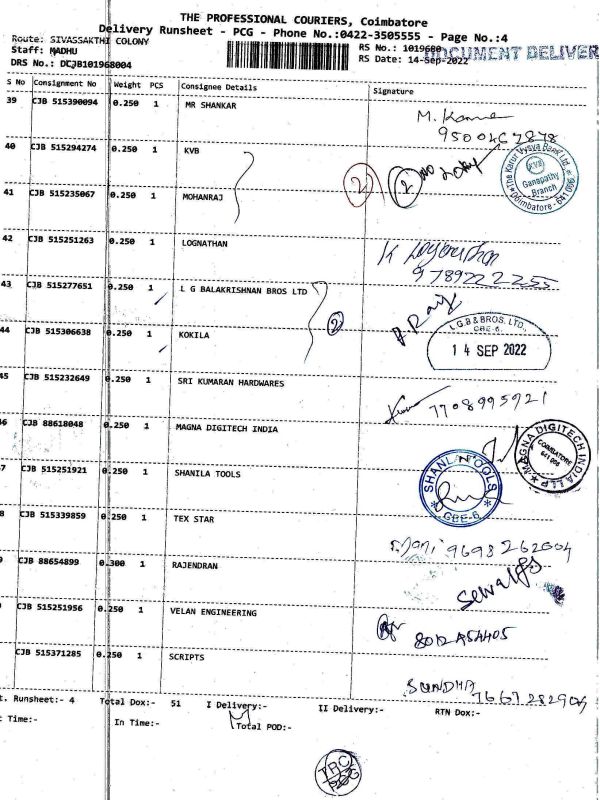 THE PROFESSIONAL COURIERS, Coimbatore
Delivery Runsheet - PCG - Phone No.:0422-3505555 - Page No.:4
Route: SIVASSAKTHI COLONY
Staff: MADHU
DRS No.: DCJB101968004
RS No.: 1019680
RS Date: 14-Sep-2022
DOCUMENT DELIVER
S No Consignment No Weight PCS Consignee Details Signature
39 CJB 515390094 0.250 1 MR SHANKAR
9500467878
40 CJB 515294274 0.250 1 KVB
The Karur Vysya Bank Ltd.
KVB
Ganapathy
Branch
Coimbatore - 641 006
2 2
41 CJB 515235067 0.250 1 MOHANRAJ
42 CJB 515251263 0.250 1 LOGNATHAN
9789222255
43 CJB 515277651 0.250 1 L G BALAKRISHNAN BROS LTD
2
L.G.B & BROS. LTD.,
CBE-6.
14 SEP 2022
44 CJB 515306638 0.250 1 KOKILA
45 CJB 515232649 0.250 1 SRI KUMARAN HARDWARES
7708995921
46 CJB 88618048 0.250 1 MAGNA DIGITECH INDIA
MAGNA DIGITECH INDIA LLP
COIMBATORE
641 006
7 CJB 515251921 0.250 1 SHANILA TOOLS
TOOLS
CBE-6.
8 CJB 515339859 0.250 1 TEX STAR
Mani 9698262004
CJB 88654899 0.300 1 RAJENDRAN
CJB 515251956 0.250 1 VELAN ENGINEERING
CJB 515371285 0.250 1 SCRIPTS
7667282904
t. Runsheet:- 4 Total Dox:- 51 I Delivery:- II Delivery:- RTN Dox:-
t Time:- In Time:- Total POD:-